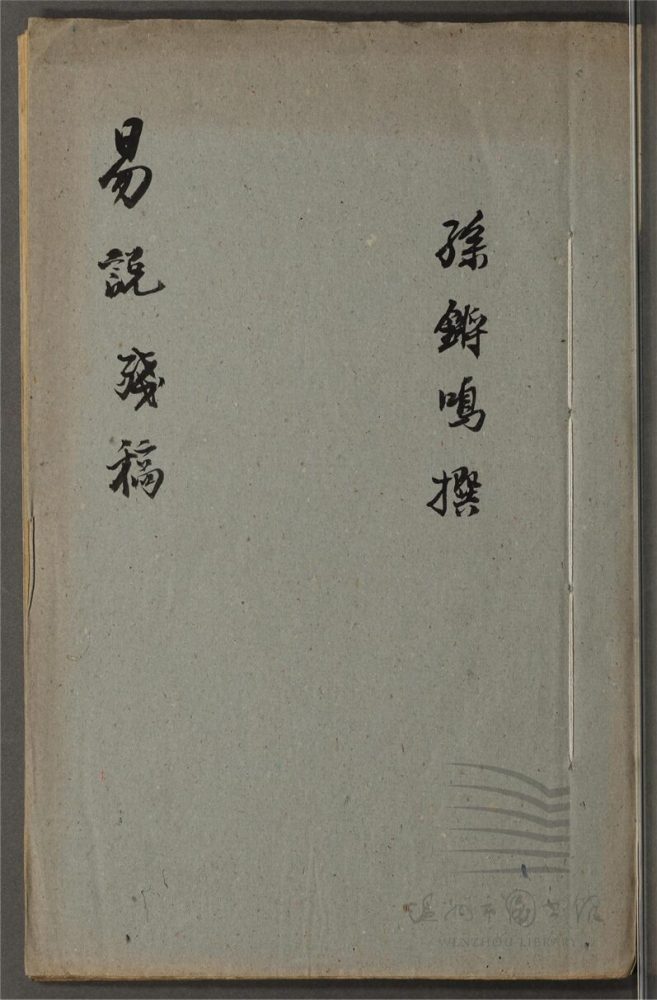 孫鏘鳴撰
易說殘稿
温州市圖書館
WENZHOU LIBRARY